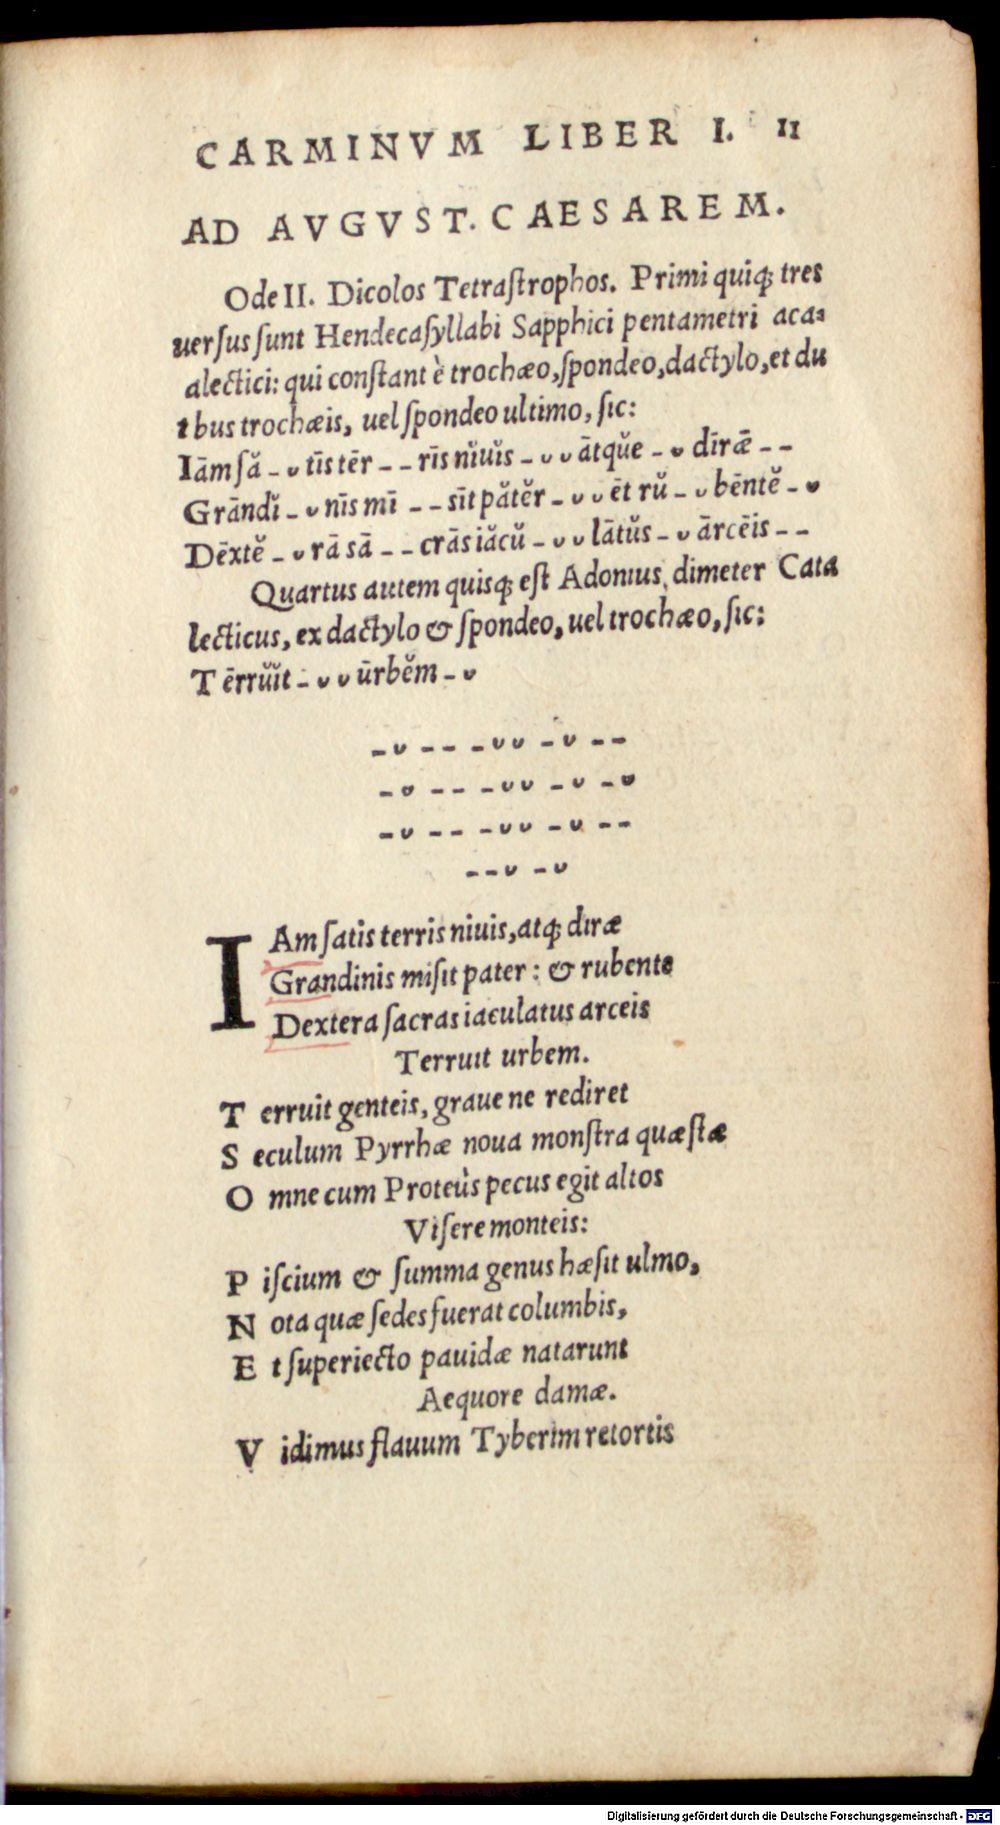 CARMINVM LIBER I. 11
AD AVGVST. CAESAREM.
Ode II. Dicolos Tetraſtrophos. Primi quiqꝫ tres
uerſus ſunt Hendecaſyllabi Sapphici pentametri aca⸗
alectici: qui conſtant è trochæo, ſpondeo, dactylo, et du
tbus trochæis, uel ſpondeo ultimo, ſic:
Iām să - ᴗ tīs tēr - - rīs nĭuĭs - ᴗ ᴗ ātqŭe - ᴗ dīrǣ - -
Grāndĭ - ᴗ nīs mī - - sīt pătĕr - ᴗ ᴗ ēt rŭ - ᴗ bēntĕ - ᴗ
Dēxtĕ - ᴗ rā sā - - crās iăcŭ - ᴗ ᴗ lātŭs - ᴗ ārcēis - -
Quartus autem quisqꝫ eſt Adonius, dimeter Cata
lecticus, ex dactylo & ſpondeo, uel trochæo, ſic:
T ērrŭĭt - ᴗ ᴗ ūrbĕm - ᴗ
- ᴗ - - - ᴗ ᴗ - ᴗ - -
- ᴗ - - - ᴗ ᴗ - ᴗ - ᴗ
- ᴗ - - - ᴗ ᴗ - ᴗ - -
- - ᴗ - ᴗ
IAm ſatis terris niuis, atqꝫ diræ
Grandinis miſit pater: & rubente
Dextera ſacras iaculatus arceis
Terruit urbem.
T erruit genteis, graue ne rediret
S eculum Pyrrhæ noua monſtra quæſtæ
O mne cum Proteùs pecus egit altos
Viſere monteis:
P iſcium & ſumma genus hæſit ulmo,
N ota quæ ſedes fuerat columbis,
E t ſuperiecto pauidæ natarunt
Aequore damæ.
V idimus flauum Tyberim retortis
Digitalisierung gefördert durch die Deutsche Forschungsgemeinschaft - DFG